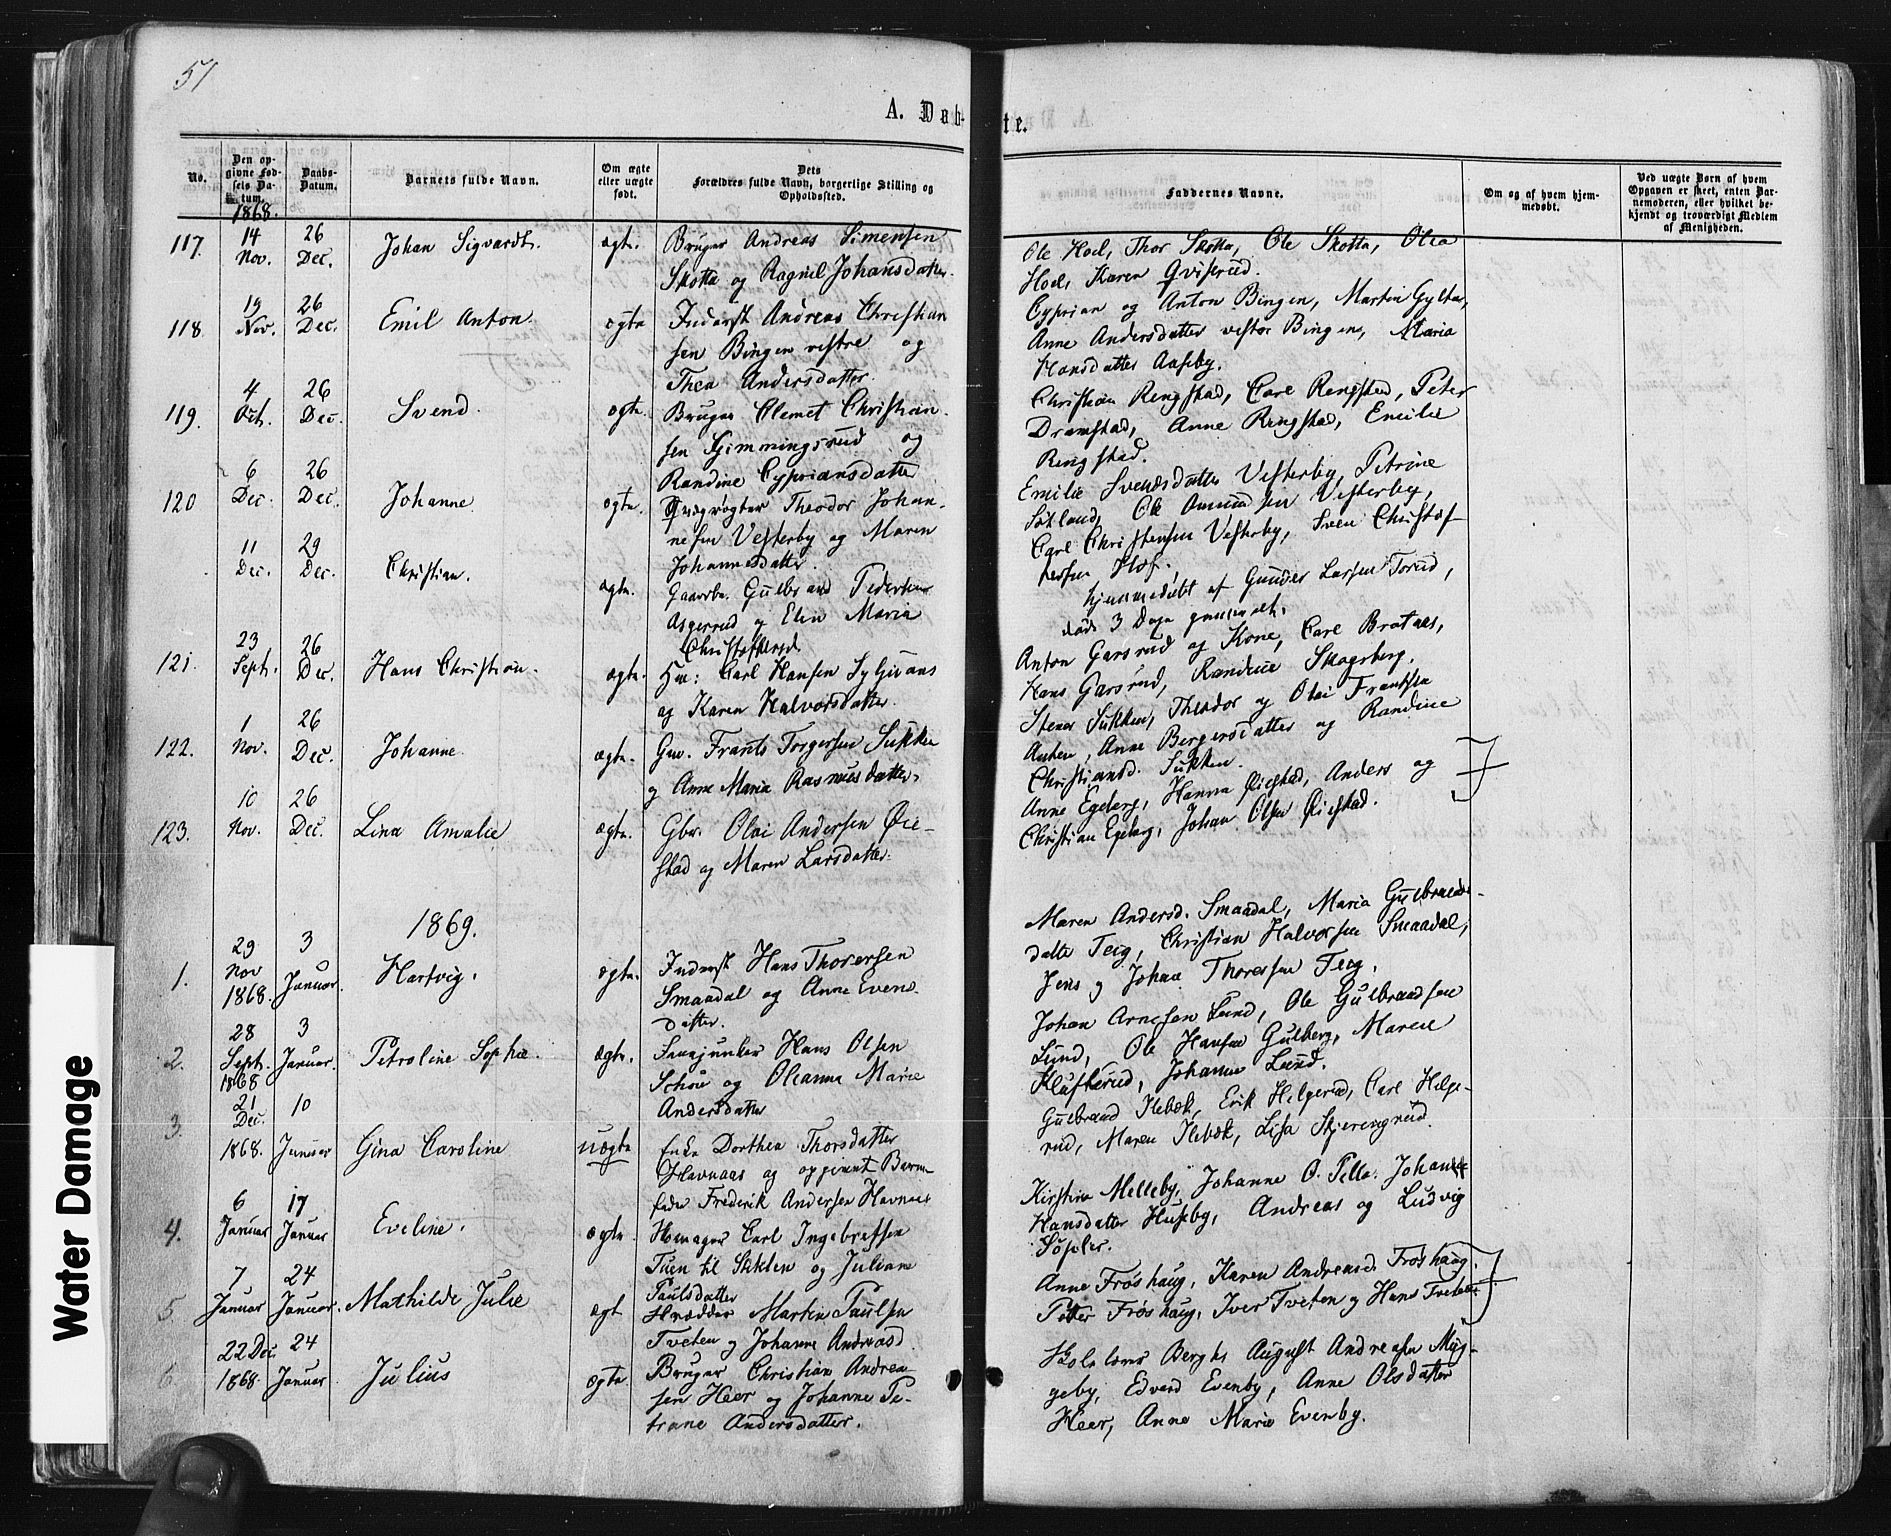 51
A. Døb-
te.
No.
Den op-
givne Fød-
sels Da-
tum.
Daabs-
Datum.
Barnets fulde Navn.
Om ægte
eller uægte
født.
Dets
Forældres fulde Navn, borgerlige Stilling og
Opholdssted.
Faddernes Navne.
Om og af hvem hjem-
medøbt.
Ved uægte Børn af hvem
Opgaven er skeet, enten Bar-
nemoderen, eller hvilket be-
kjendt og troværdigt Medlem
af Menigheden.
1868.
117. 14 Nov. 26 Dec. Johan Sigvardt. ægte. Bruger Andreas Simensen
Skotta og Ragnil Johansdatter.
Ole Hoel, Thor Skotta, Ole Skotta, Olea
Hoel, Karen Qviserud.
118. 19 Nov. 26 Dec. Emil Anton. ægte Inderst Andreas Christian
sen Bingen vestre og
Thea Andersdatter.
Cyprian og Anton Bingen, Martin Gylta,
Anne Andersdatter vestre Bingen, Maria
Hansdatter Aaseby.
119. 4 Oct. 26 Dec. Svend. ægte. Bruger Clemet Christian-
sen Gimmingsrud og
Randine Cypriansdatter
Christian Ringstad, Carl Ringstad, Peter
Dramstad, Anne Ringstad, Emilie
Ringstad.
120 6 Dec. 26 Dec. Johanne. ægte. Qvægrøgter Theodor Johan-
nesen Vesterby og Maren
Johannesdatter.
Emilie Svensdatter Vesterby, Petrine
Ole Amundsen Vesterby,
Carl Christensen Vesterby, Sven Christof-
fersen Hof.
11 Dec. 29 Dec. Christian. ægte. Gaardbr. Gulbrand Pedersen
Asgerud og Elen Maria
Christoffersd.
hjemmedøbt af Gunder Larsen Torud,
døde 3 Dage gammelt.
121. 23 Sept. 26 Dec. Hans Christian. ægte. Carl Hansen
og Karen Halvorsdatter.
Anton Garsrud og Kone, Carl Brataas,
Hans Garsrud, Randine Skogsberg.
122. 1 Nov. 26 Dec. Johanne ægte. Gm. Frants Torgersen Sukken
og Anne Maria Rasmusdatter.
Stener Sukken, Theodor og Olai Frantsen
Anne Bergersdatter og Randine
Christiansd. Sukken.
123. 10 Nov. 26 Dec. Lina Amalie ægte. Gbr. Olai Andersen Øie-
stad og Maren Larsdatter.
Anne Egeberg, Hanna Øiestad, Anders og
Christian Egeberg, Johan Olsen Øiestad.
1869.
1. 29 Nov 1868. 3 Januar. Hartvig. ægte. Inderst Hans Thoresen
Smaadal og Anne Evens-
datter.
Maren Andersd. Smaadal, Maria Gulbrands-
datter Teig, Christian Halvorsen Smaadal,
Jens og Johan Thoresen Teig.
2. 28 Sept. 1868 3 Januar. Petroline Sophie. ægte. Hans Olsen
Schou og Oleanna Marie
Andersdatter
Johan Arnesen Lund, Ole Gulbrandsen
Lund, Ole Hansen Gulberg, Maren
Klufterud, Johanne Lund.
3. 21 Dec. 1868. 10 Januar Gina Caroline uægte Enke Dorthea Thorsdatter
Havnaas og opgivet Barne-
fader Frederik Andersen Havnaas
Gulbrand Ilebæk, Erik Helgerud, Carl Helge-
rud, Maren Ilebæk, Lisa Skjerengrud.
4. 6 Januar 17 Januar Eveline. ægte. Carl Ingebretsen
Tuen til Sikklen og Juliane
Paulsdatter
Kirstina Melleby, Johanne O. Johanne
Hansdatter Huseby, Andreas og Ludvig
Søpler.
5. 7 Januar 24 Januar. Mathilde Julie ægt Skrædder Martin Paulsen
Tveten og Johanne Andreasd
Anne Frøshaug, Karen Andreasd. Frøshaug,
Petter Frøshaug, Iver Tveten og Hans Tveten
6. 22 Dec. 1868 24 Januar Julius ægte. Bruger Christian Andrea-
sen Heer og Johanne Pe-
trane Andersdatter.
Skolelærer Berghe, August Andreasen Myg-
geby, Edvard Evenby, Anne Olsdatter
Heer, Anne Marie Evenby.
Water Damage